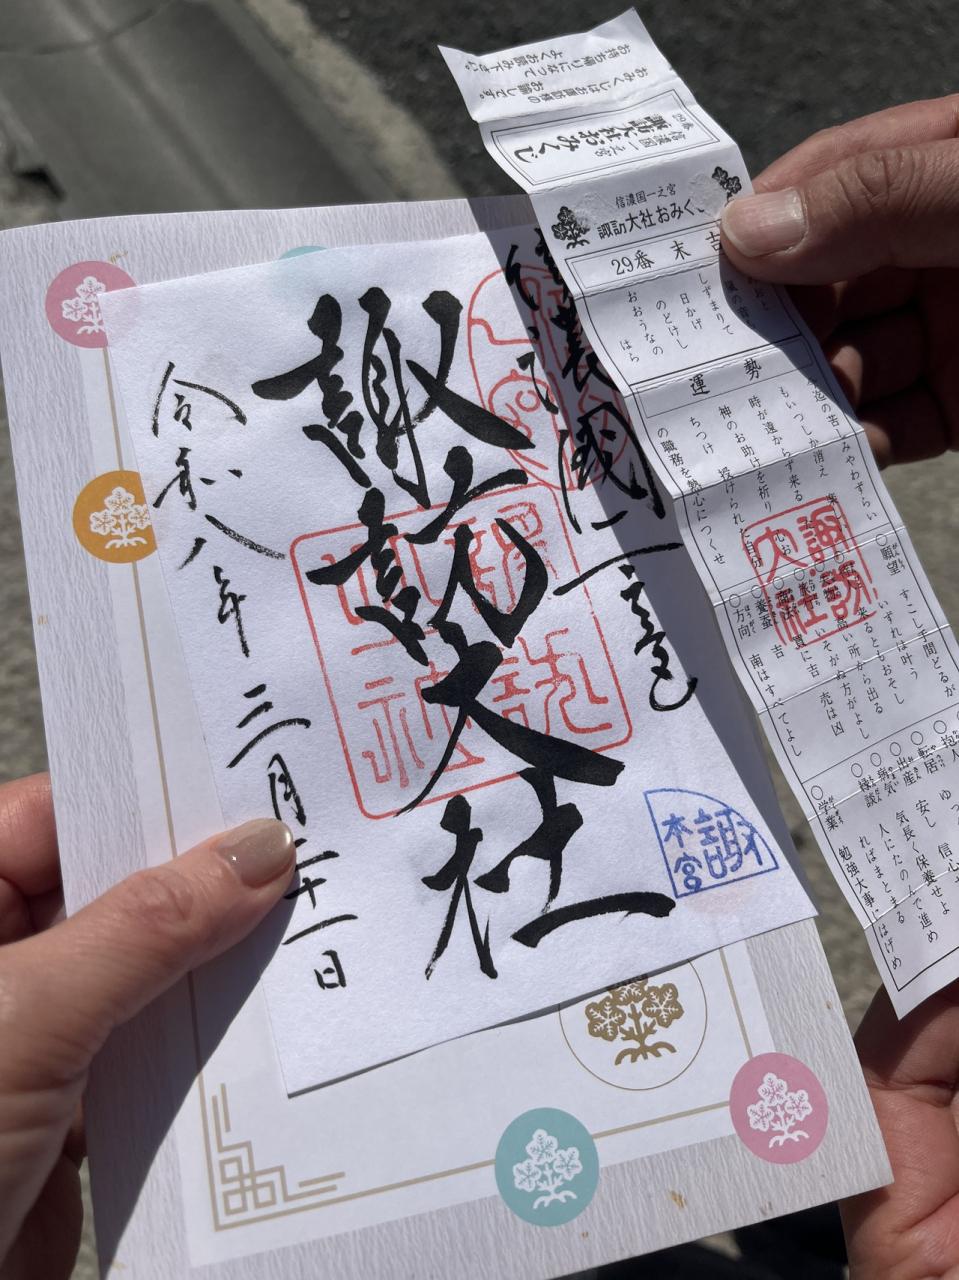 信濃國一之宮
諏訪大社
令和八年三月二十一日
諏訪
本宮
おみくじはお諏訪様の
お諭しです。
お持ち帰りになって
よくお読み下さい
29番
信濃国一之宮
諏訪大社おみくじ
信濃国一之宮
諏訪大社おみく
29番 末吉
しずまりて
日かげ
のどけし
おおうなの
はら
運勢
の苦しみやわずらい
もいつしか消え
時が遠からず来る 心お
ちつけ 神のお助けを祈り
授けられた自分
の職務を熱心につくせ
諏訪大社
願望 すこし手間どるが
いずれは叶う
来るともおそし
高い所から出る
いそがぬ方がよし
買に吉 売は凶
養蚕 吉
方向 南はすべてよし
転居 安し
出産
病気 気長く保養せよ
縁談 人にたのんで進め
ればまとまる
学業 勉強大事にはげめ